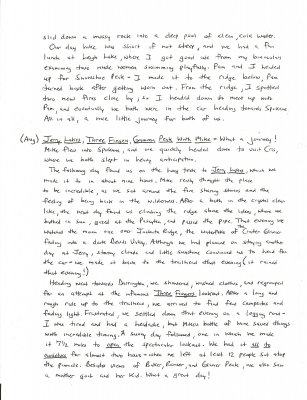 slid down a mossy rock into a deep pool of clean, cold water.
Our day hike was short if not steep, and we had a fun
lunch at Leigh Lake, where I got good use from my binoculars
examining two nude women swimming playfully. Pam and I headed
up for Snowshoe Peak - I made it to the ridge below, Pam
turned back after getting worn out. From the ridge, I spotted
two new fires close by! I headed down to meet up with
Pam, and eventually we both were in the car heading towards Spokane.
All in all, a nice little journey for both of us.
(Aug) Jerry Lakes, Three Fingers, Gunnison Peak With Mike - What a journey!
Mike flew into Spokane, and we quickly headed down to visit Cris,
where we both slept in heavy anticipation.
The following day found us on the long trek to Jerry Lakes, which we
made it to in about nine hours. Mike really thought the place
to be incredible, as we sat around the fire sharing stories and the
feeling of being back in the wilderness. After a bath in the crystal clear
lake, the next day found us climbing the ridge above the lakes, where we
bathed in sun, gazed at the Paysayten, and passed the pipe. That evening we
watched the moon rise over Jackita Ridge, the watercolors of the Crater Glacier
fading into a dark Devils Valley. Although we had planned on staying another
day at Jerry, stormy clouds and little snowstorm convinced us to head for
the car - we made it back to the trailhead that evening (it rained
that evening!)
Heading west towards Darrington, we showered, washed clothes, and regrouped
for an attempt at the infamous Three Fingers Lookout. After a long and
rough ride up to the trailhead, we arrived to find few campsites and
fading light. Frustrated, we settled down that evening on a logging road -
I was tired and had a headache, but Mikes bottle of wine saved things
with incredible timing. A sunny day followed, one in which we made
it 7½ miles to open the spectacular lookout. We had it all to
ourselves for almost three hours - when we left at least 12 people sat atop
the pinnacle. Besides scenes of Baker, Rainier, and Glacier Peak, we also saw
a mother goat and her kid. What a great day!